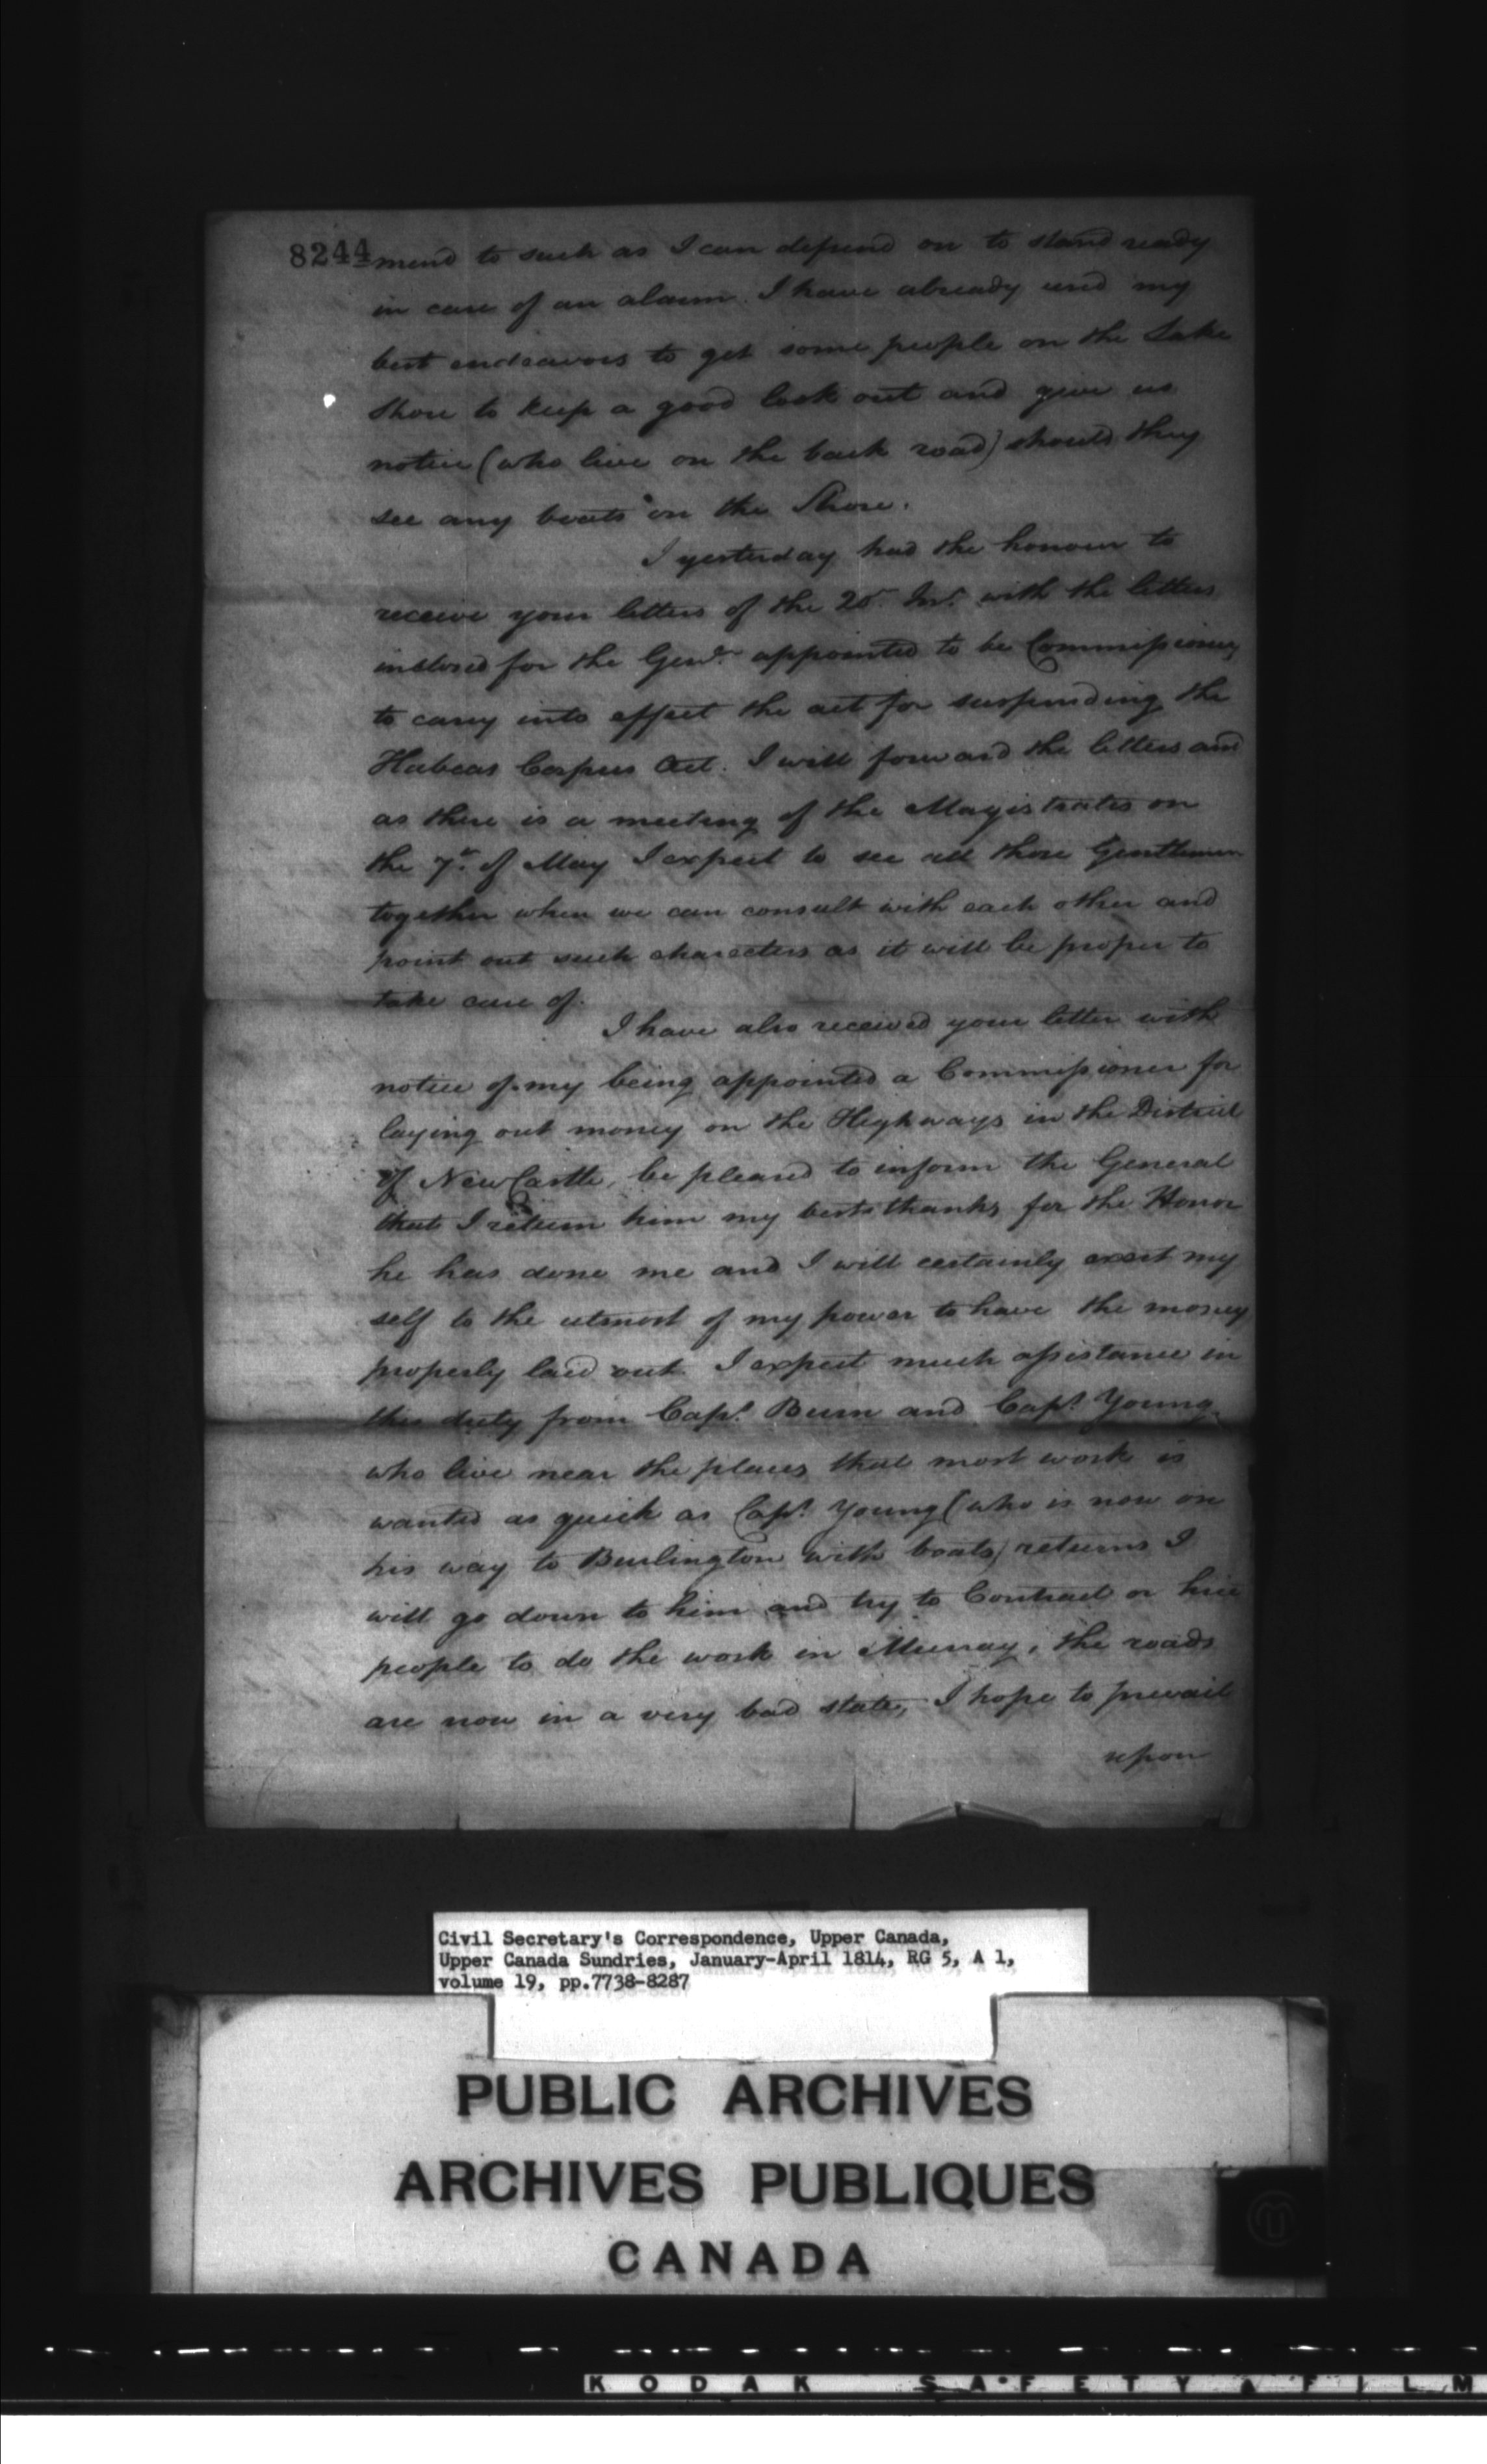 8244
mend to such as I can depend on to stand ready
in case of an alarm. I have already used my
best endeavors to get some people on the Lake
Shore to keep a good look out and give us
notice (who live on the back road) should they
see any boats on the Shore.
I yesterday had the honour to
receive your letters of the 25. Inst. with the letters
inclosed for the Gen. appointed to be Commissioners
to carry into effect the act for suspending the
Habeas Corpus Act. I will forward the letters and
as there is a meeting of the Magistrates on
the 7. of May I expect to see all those Gentlemen
together when we can consult with each other and
point out such characters as it will be proper to
take care of.
I have also received your letter with
notice of my being appointed a Commissioner for
laying out money on the Highways in the District
of NewCastle, be pleased to inform the General
that I return him my best thanks for the Honor
he has done me and I will certainly exert my
self to the utmost of my power to have the money
properly laid out. I expect much assistance in
this duty from Capt. Burn and Capt. Young,
who live near the places that most work is
wanted as quick as Capt. Young (who is now on
his way to Burlington with boats) returns I
will go down to him and try to Contract or hire
people to do the work in Murray, the roads
are now in a very bad state, I hope to prevail
upon
Civil Secretary's Correspondence, Upper Canada,
Upper Canada Sundries, January-April 1814, RG 5, A 1,
volume 19, pp.7738-8287
PUBLIC ARCHIVES
ARCHIVES PUBLIQUES
CANADA
KODAK SAFETY FILM